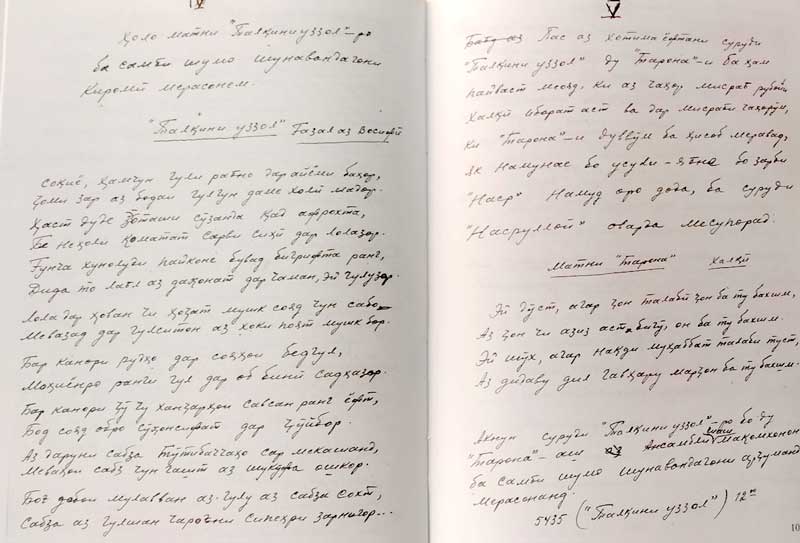 IV
Ҳоло матни "Талқини уззол"-ро
ба самъи шумо шунавандагони
киромӣ мерасонем.
"Талқини уззол" Ғазал аз Восифӣ
Соқиё, ҳамчун гули раъно дар айёми баҳор,
Ҷоми зар аз бодаи гулгун даме холӣ мадор.
Ҳаст дуде з-оташи сӯзанда қад афрохта,
Бе ниҳоли қоматат сарви сиҳӣ дар лолазор.
Ғунча хунолуди пайконе бувад бигрифта ранг,
Дида то лаъл аз даҳонат дар чаман, эй гулузор.
Лола дар ҳован чи ҳоҷат мушк сояд чун сабо
Мевазад дар гулситон аз хоки поят мушкбор.
Бар канори рӯдҳо дар соқҳои бедгул,
Моҳиёнро ранги гул дар об бинӣ садҳазор.
Бар канори ҷӯ чу ханҷарҳои савсан ранг ёфт,
Бод сояд обро сӯҳонсифат дар ҷӯйбор.
Аз даруни сабза тӯтибаччаҳо сар мекашанд,
Меваҳои сабз чун гашт аз шукуфа ошкор.
Боғ дебои мулавван аз гулу аз сабза сохт,
Сабза аз гулшан чароғони сипеҳри зарнигор...
V
Баъд аз Пас аз хотима ёфтани суруди
"Талқини уззол" ду "Тарона"-и ба ҳам
пайваст меояд, ки аз чаҳор мисраъ рубоӣи
халқӣ иборат аст ва дар мисраъи чаҳорӯм,
ки "Тарона"-и дуввӯм ба ҳисоб меравад,
як намунае бо усули - яъне бо зарби
"Наср" намуд оро дода, ба суруди
"Насруллоӣ" оварда месупорад.
Матни "Тарона" Халқӣ
Эй дӯст, агар ҷон талабӣ ҷон ба ту бахшам,
Аз ҷон чи азиз аст, бигӯ, он ба ту бахшам.
Эй шӯх, агар нақди муҳаббат талаби туст,
Аз дидаву дил гавҳару марҷон ба ту бахшам.
Акнун суруди "Талқини уззол"-ро бо ду
"Тарона"-аш Ансамбли Шашмақомхонон
ба самъи шумо шунавандагони арҷуманд
мерасонанд.
5435 ("Талқини уззол") 12
10